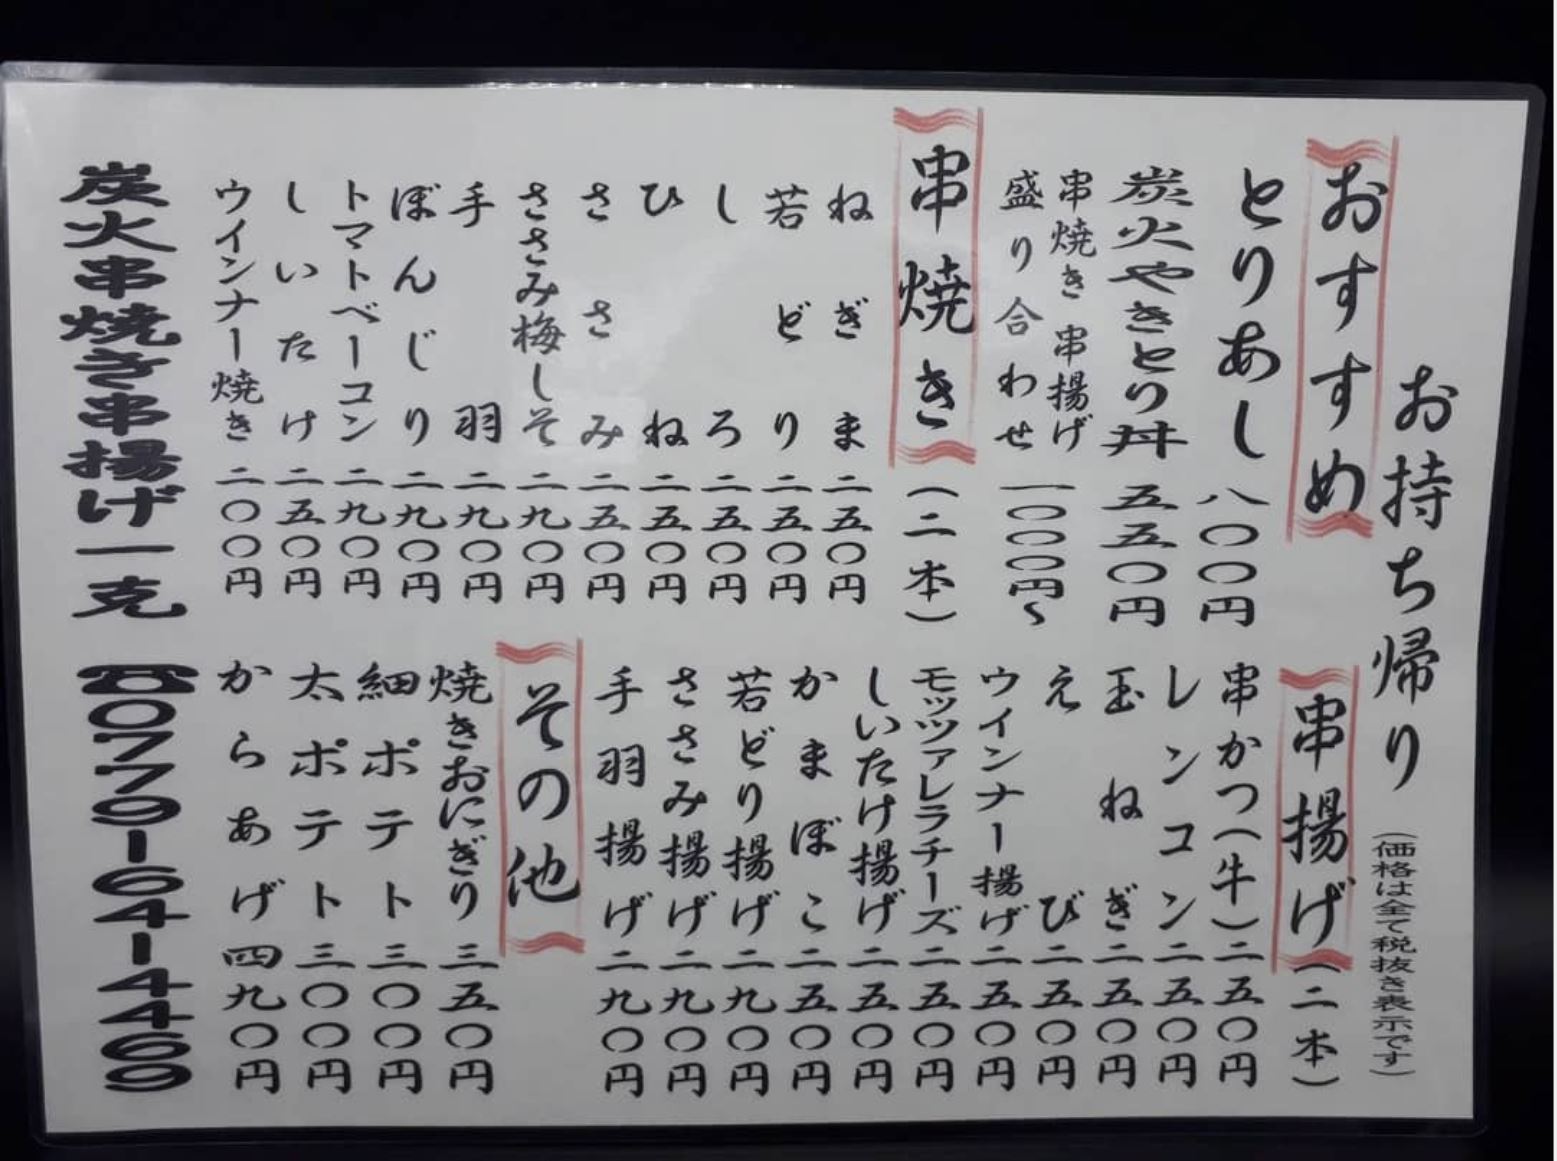 お持ち帰り（価格は全て税抜き表示です）
おすすめ
とりあし 八〇〇円
炭火やきとり丼 五五〇円
串焼き 串揚げ
盛り合わせ 一〇〇〇円～
串焼き（二本）
ねぎま 二五〇円
若どり 二五〇円
しろ 二五〇円
ひね 二五〇円
ささみ 二五〇円
ささみ梅しそ 二九〇円
手羽 二九〇円
ぼんじり 二九〇円
トマトベーコン 二九〇円
しいたけ 二五〇円
ウインナー焼き 二〇〇円
串揚げ（二本）
串かつ（牛）二五〇円
レンコン 二五〇円
玉ねぎ 二五〇円
えび 二五〇円
ウインナー揚げ 二五〇円
モッツァレラチーズ 二五〇円
しいたけ揚げ 二五〇円
かまぼこ 二五〇円
若どり揚げ 二九〇円
ささみ揚げ 二九〇円
手羽揚げ 二九〇円
その他
焼きおにぎり 三五〇円
細ポテト 三〇〇円
太ポテト 三〇〇円
からあげ 四九〇円
炭火串焼き串揚げ一克 ☎0779-64-4469